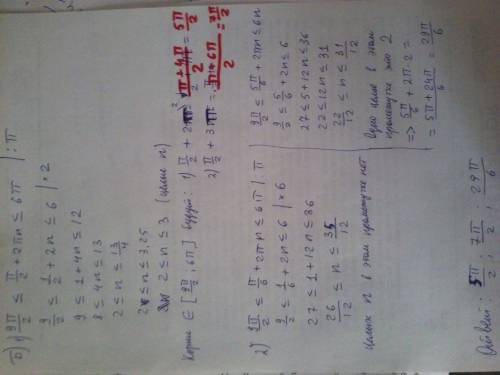 Б) 1) 9π/2 ≤ π/2 + 2πn ≤ 6π | : π
9/2 ≤ 1/2 + 2n ≤ 6 | × 2
9 ≤ 1 + 4n ≤ 12
8 ≤ 4n ≤ 13
2 ≤ n ≤ 13/4
2 ≤ n ≤ 3,25
2 ≤ n ≤ 3 (целые n)
Корни ∈ [9π/2 ; 6π] будут: 1) π/2 + 2π
π+4π/2 = 5π/2
2) π/2 + 3π =
π+6π/2 = 7π/2
2) 9π/2 ≤ π/6 + 2πn ≤ 6π | : π
9/2 ≤ 1/6 + 2n ≤ 6 | × 6
27 ≤ 1 + 12n ≤ 36
26/12 ≤ n ≤ 35/12
целых n в этом промежутке нет
9π/2 ≤ 5π/6 + 2πn ≤ 6π
9/2 ≤ 5/6 + 2n ≤ 6
27 ≤ 5 + 12n ≤ 36
22 ≤ 12n ≤ 31
22/12 ≤ n ≤ 31/12
Одно целое в этом
промежутке это 2
=> 5π/6 + 2π·2 =
= 5π+24π/6 = 29π/6
Ответ: 5π/2 ; 7π/2 ; 29π/6